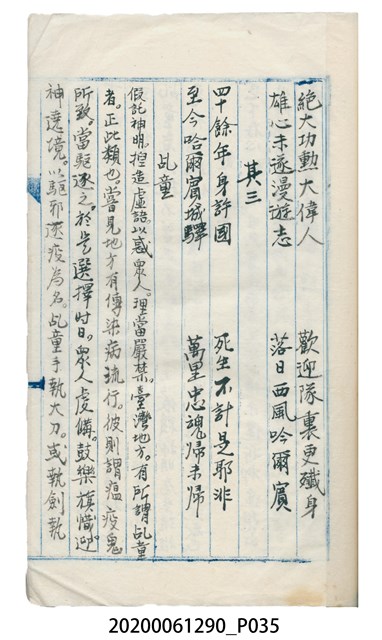 絕大功勲大偉人　歡迎隊裏更殲身
雄心未遂漫遊志　落日西風吟爾賓
其三
四十餘年身許國　死生不計是耶非
至今哈爾賓城驛　萬里忠魂歸未歸
乩童
假託神明。揑造虛語。以惑衆人。理當嚴禁。臺灣地方。有所謂乩童
者。正此類也。嘗見地方有傳染病流行。彼則謂瘟疫鬼
所致。當驅逐之。於是選擇時日。衆人虔備。鼓樂旗幟。迎
神遶境。以驅邪逐疫為名。乩童手執大刀。或執劍執
20200061290_P035